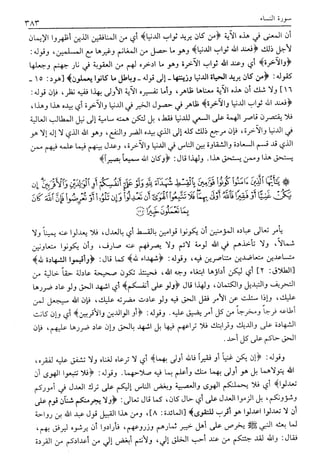 سورة النساء
٣٨٣
أن المعنى في هذه الآية ﴿من كان يريد ثواب الدنيا﴾ أي من المنافقين الذين أظهروا الإيمان
لأجل ذلك ﴿فعند الله ثواب الدنيا﴾ وهو ما حصل من المغانم وغيرها مع المسلمين، وقوله:
﴿والآخرة﴾ أي وعند الله ثواب الآخرة وهو ما ادخره لهم من العقوبة في نار جهنم وجعلها
كقوله: ﴿من كان يريد الحياة الدنيا وزينتها ـ إلى قوله ـ وباطل ما كانوا يعملون﴾ [هود: ١٥ ـ
١٦] ولا شك أن هذه الآية معناها ظاهر، وأما تفسيره الآية الأولى بهذا ففيه نظر، فإن قوله:
﴿فعند الله ثواب الدنيا والآخرة﴾ ظاهر في حصول الخير في الدنيا والآخرة أي بيده هذا وهذا،
فلا يقتصرن قاصر الهمة على السعي للدنيا فقط، بل لتكن همته سامية إلى نيل المطالب العالية
في الدنيا والآخرة، فإن مرجع ذلك كله إلى الذي بيده الضر والنفع، وهو الله الذي لا إله إلا هو
الذي قد قسم السعادة والشقاوة بين الناس في الدنيا والآخرة، وعدل بينهم فيما علمه فيهم ممن
يستحق هذا وممن يستحق هذا. ولهذا قال: ﴿وكان الله سميعاً بصيراً﴾
يَا أَيُّهَا الَّذِينَ آمَنُوا كُونُوا قَوَّامِينَ بِالْقِسْطِ شُهَدَاءَ لِلَّهِ وَلَوْ عَلَى أَنْفُسِكُمْ أَوِ الْوَالِدَيْنِ وَالْأَقْرَبِينَ
إِنْ يَكُنْ غَنِيًّا أَوْ فَقِيرًا فَاللَّهُ أَوْلَى بِهِمَا فَلَا تَتَّبِعُوا الْهَوَى أَنْ تَعْدِلُوا وَإِنْ تَلْوُوا أَوْ تُعْرِضُوا فَإِنَّ اللَّهَ كَانَ
بِمَا تَعْمَلُونَ خَبِيرًا
يأمر تعالى عباده المؤمنين أن يكونوا قوامين بالقسط أي بالعدل، فلا يعدلوا عنه يميناً ولا
شمالاً، ولا تأخذهم في الله لومة لائم ولا يصرفهم عنه صارف، وأن يكونوا متعاونين
متساعدين متعاضدين متناصرين فيه، وقوله: ﴿شهداء لله﴾ كما قال: ﴿وأقيموا الشهادة لله﴾
[الطلاق: ٢] أي ليكن أداؤها ابتغاء وجه الله، فحينئذ تكون صحيحة عادلة حقاً خالية من
التحريف والتبديل والكتمان، ولهذا قال ﴿ولو على أنفسكم﴾ أي اشهد الحق ولو عاد ضررها
عليك، وإذا سئلت عن الأمر فقل الحق فيه ولو عادت مضرته عليك، فإن الله سيجعل لمن
أطاعه فرجاً ومخرجاً من كل أمر يضيق عليه. وقوله: ﴿أو الوالدين والأقربين﴾ أي وإن كانت
الشهادة على والديك وقرابتك فلا تراعهم فيها بل اشهد بالحق وإن عاد ضررها عليهم، فإن
الحق حاكم على كل أحد.
وقوله: ﴿إن يكن غنياً أو فقيراً فالله أولى بهما﴾ أي لا ترعاه لغناه ولا تشفق عليه لفقره،
الله يتولاهما بل هو أولى بهما منك وأعلم بما فيه صلاحهما. وقوله: ﴿فلا تتبعوا الهوى أن
تعدلوا﴾ أي فلا يحملنكم الهوى والعصبية وبغض الناس إليكم على ترك العدل في أموركم
وشؤونكم، بل الزموا العدل على أي حال كان، كما قال تعالى: ﴿ولا يجرمنكم شنآن قوم على
أن لا تعدلوا اعدلوا هو أقرب للتقوى﴾ [المائدة: ٨]، ومن هذا القبيل قول عبد الله بن رواحة
لما بعثه النبي ﷺ يخرص على أهل خيبر ثمارهم وزروعهم، فأرادوا أن يرشوه ليرفق بهم،
فقال: والله لقد جئتكم من عند أحب الخلق إلي، ولأنتم أبغض إلي من أعدادكم من القردة